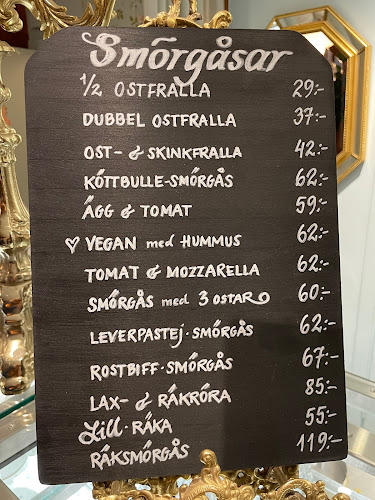 Smörgåsar
1/2 OSTFRALLA 29:-
DUBBEL OSTFRALLA 37:-
OST- & SKINKFRALLA 42:-
KÖTTBULLE-SMÖRGÅS 62:-
ÄGG & TOMAT 59:-
♡ VEGAN med HUMMUS 62:-
TOMAT & MOZZARELLA 62:-
SMÖRGÅS med 3 OSTAR 60:-
LEVERPASTEJ-SMÖRGÅS 62:-
ROSTBIFF-SMÖRGÅS 67:-
LAX- & RÄKRÖRA 85:-
Lill-RÄKA 55:-
RÄKSMÖRGÅS 119:-